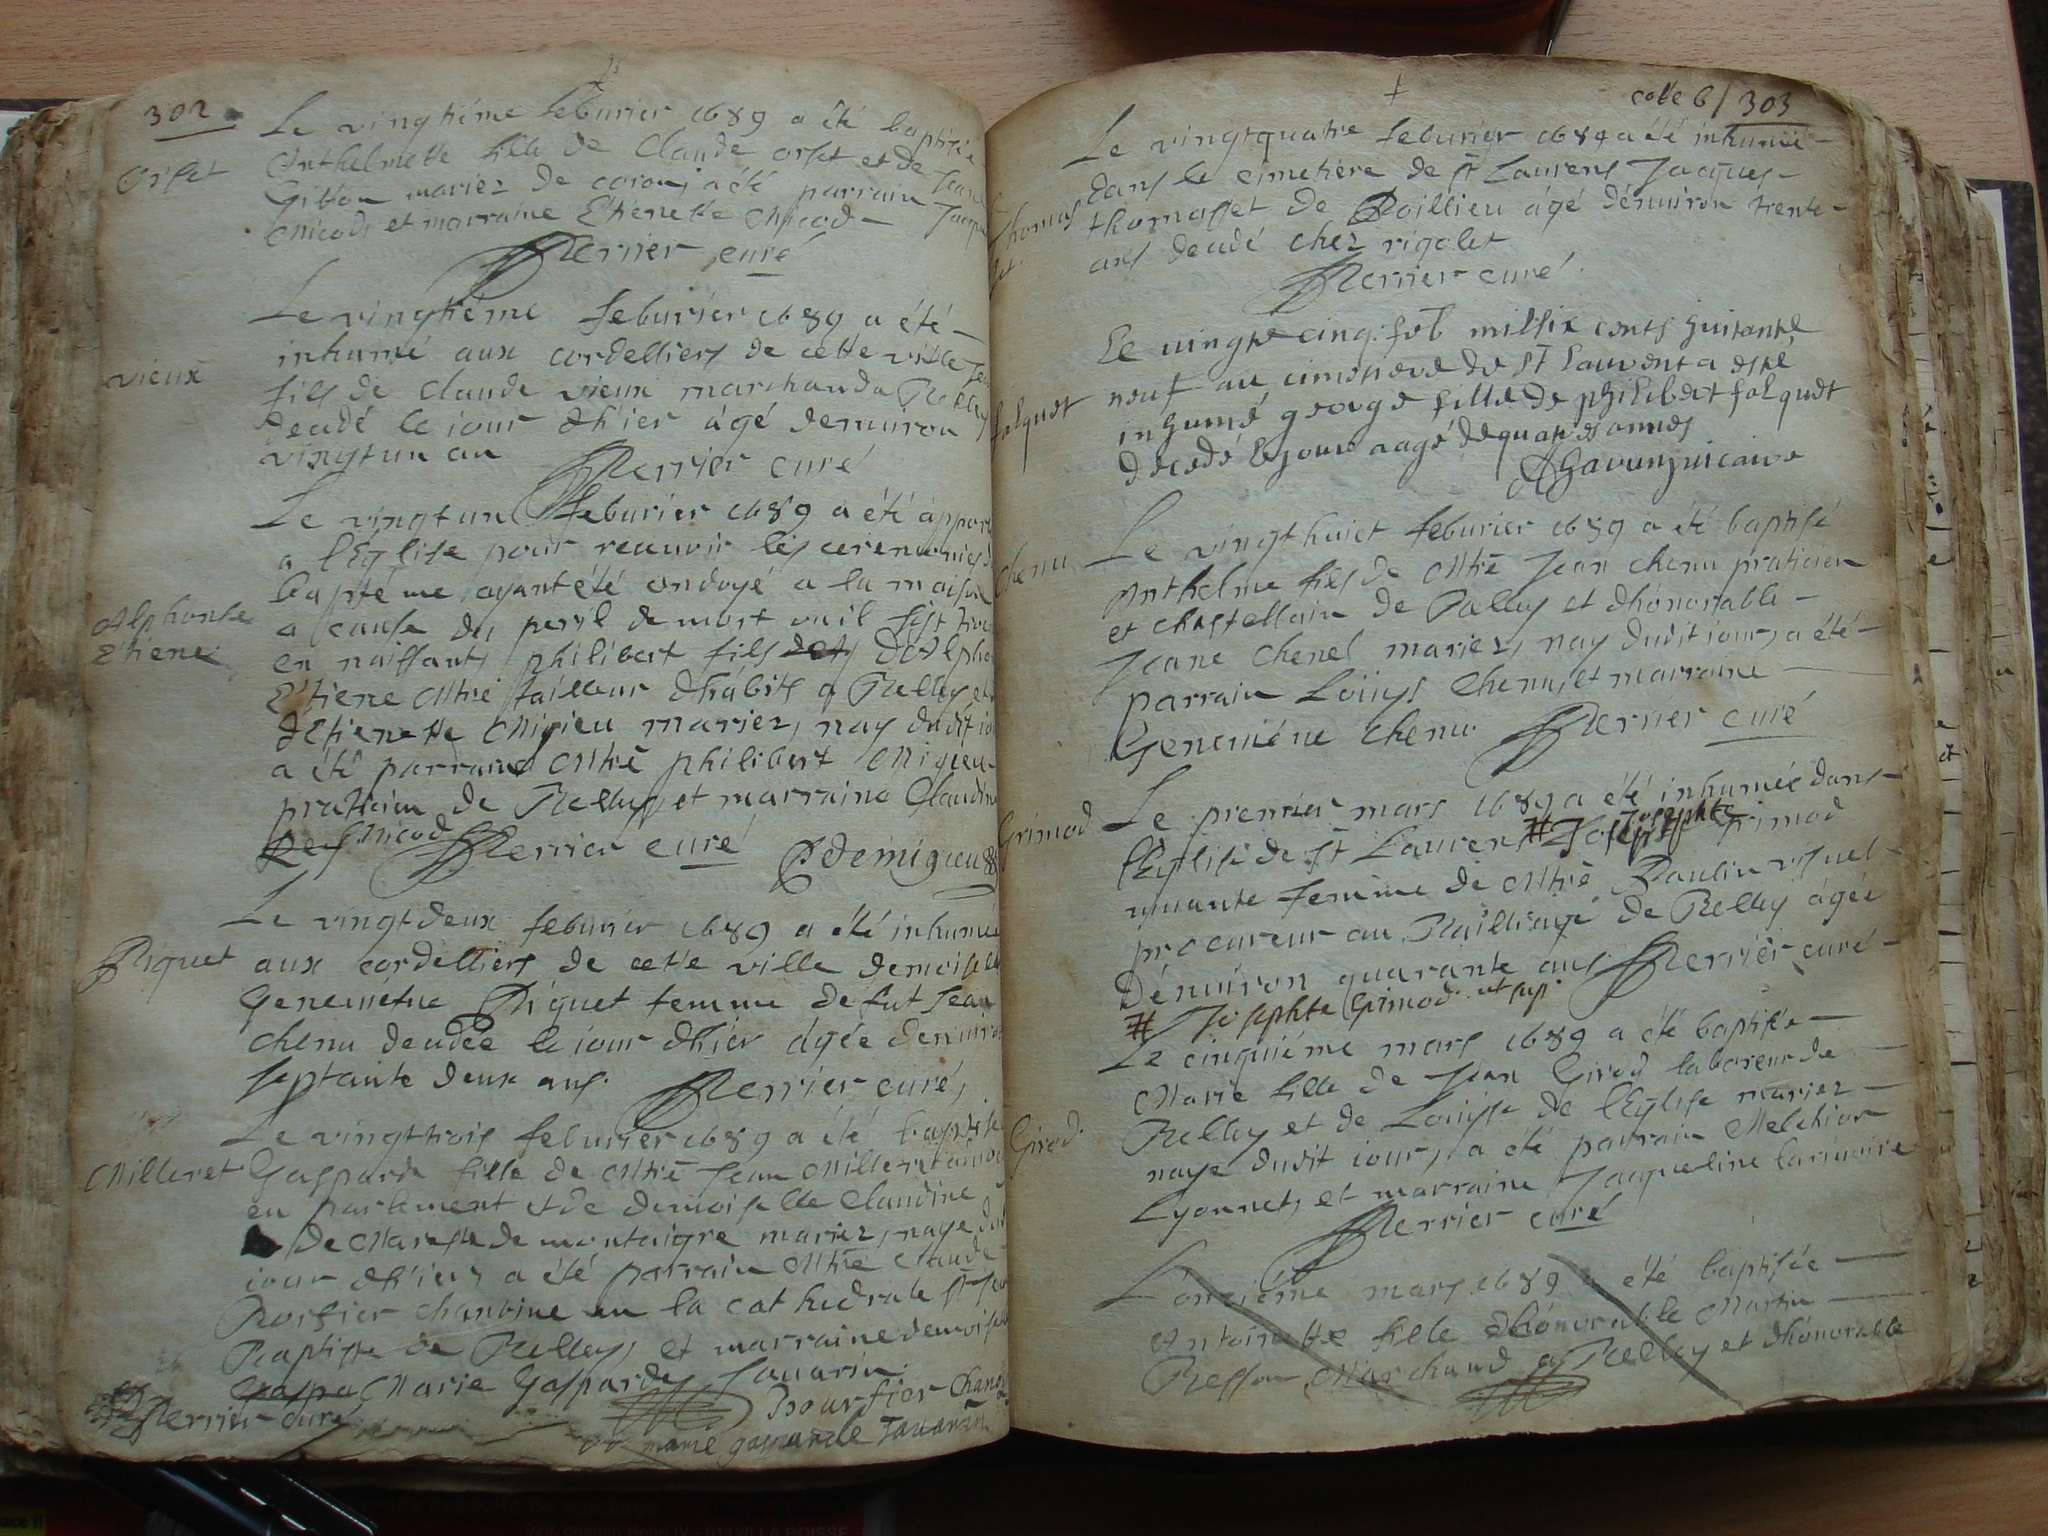 302
Le vingtiéme feburier 1689 a êté baptisée
Orset
Anthelmette fille de Claude orset et de Jeane
Gibbon mariez de coron, a été parrain Jacque
Micod, et marraine Etienette Micod
Perrier curé
Le vingtiéme feburier 1689 a été
inhumé aux cordelliers de cette ville Jean
vieux
fils de Claude vieux marchand a Belley
decedé le iour d'hier âgé denuiron
vingt un an
Perrier curé
Le vingt un feburier 1689 a été apporté
a l'Eglise pour receuvoir les ceremonies du
baptéme, ayant été ondoyé a la maison
Alphonse
Etiene
a cause du peryl de mort ou il s'est trou
en naissant, philibert fils de Alphon
Etiene Mtre tailleur d'habits a Belley et
d'Etienette Migieu mariez, nay dudit io
a été parrain Mtre philibert Migieu
praticien de Belley, et marraine Claudine
Rey Micod
Perrier curé
P demigieu
Le vingt deux feburier 1689 a été inhumée
Piquet
aux cordelliers de cette ville demoiselle
Geneuiéfue Piquet femme de fut Jean
Chenu decedée le iour d'hier âgée denuiron
septante deux ans.
Perrier curé
Le vingt trois feburier 1689 a été baptisée
Milleret
Gasparde fille de Mtre Jean Milleret auoc
en parlement et de demoiselle Claudine
de Mareste de montaigre mariez, naye du
iour d'hier, a été parrain Mtre Claude
Borsier chanoine en la cathedrale St Jean
Baptiste de Belley, et marraine demoiselle
Gaspa Marie Gasparde Sauarin
Perrier curé
Boursier Chano
marie gasparde Sauarin
cotte 6 / 303
Le vingt quatre feburier 1689 a été inhumé
dans le cimetiére de St Laurens Jacques
Thomas
set
thomasset de Poillieu âgé dénuiron trente
ans decedé chez rigolet
Perrier curé
Le uingte cinq feb mil six cents huitante
neuf au cimetiere de St Lauvent a esté
falquet
inhumé george fille de philibert falquet
decedé le jour aagé de quatre annés
Chavun vicaire
Le vingt huict feburier 1689 a été baptisé
Chenu
Anthelme fils de Mtre Jean Chenu praticien
et chastellain de Belley et d'hônorable
Jeane Chenel mariez, nay dudit iour, a été
parrain Loüys Chenu, et marraine
Geneuiéne Chenu
Perrier curé
Grimod
Le premier mars 1689 a été inhumée dans
l'Eglise de St Laurens # Josephte Grimod
Josephte
viuante femme de Mtre Paulin
procureur au Bailliage de Belley âgée
dénuiron quarante ans
Perrier curé
# Josephte Grimod ut sup
Le cinquiéme mars 1689 a été baptisée
Marie fille de Jean Girod laboreur de
Girod
Belley et de Loüise de l'Eglise mariez
naye dudit iour, a été parrain Melchior
Lyonnet, et marraine Jacqueline lariuoire
Perrier curé
L'onziéme mars 1689 a été baptisée
Antoinette fille d'hônorable Martin
Besson Marchand a Belley et d'hônorable